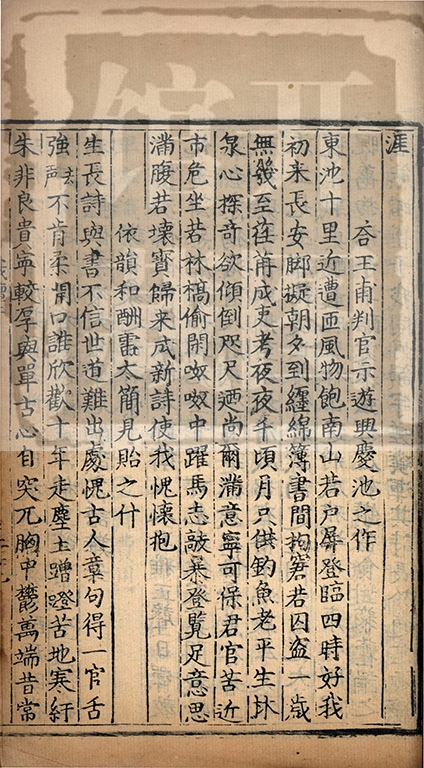 涯
吞王甫判官示遊興慶池之作
東池十里近遭匝風物飽南山若户屏登臨四時好我
初来長安脚擬朝夕到纏綿簿書間拘窘若囚盗一歲
無幾至徃莆成吏考夜夜千頃月只供釣魚老平生林
泉心探奇欲傾倒咫尺迺尚爾滿意寧可保君官苦近
市危坐若林槁偷閑呶呶中躍馬志敲暴登覧足意思
滿腹若壊寳歸来成新詩使我愧懐抱
依韻和酬雷太簡見貽之什
生長詩與書不信世道難出處愧古人章句得一官舌
強去声不肯柔開口誰欣歡十年走塵土蹭蹬苦地寒紆
朱非良貴寧較淳與單古心自突兀胸中鬱萬端昔常